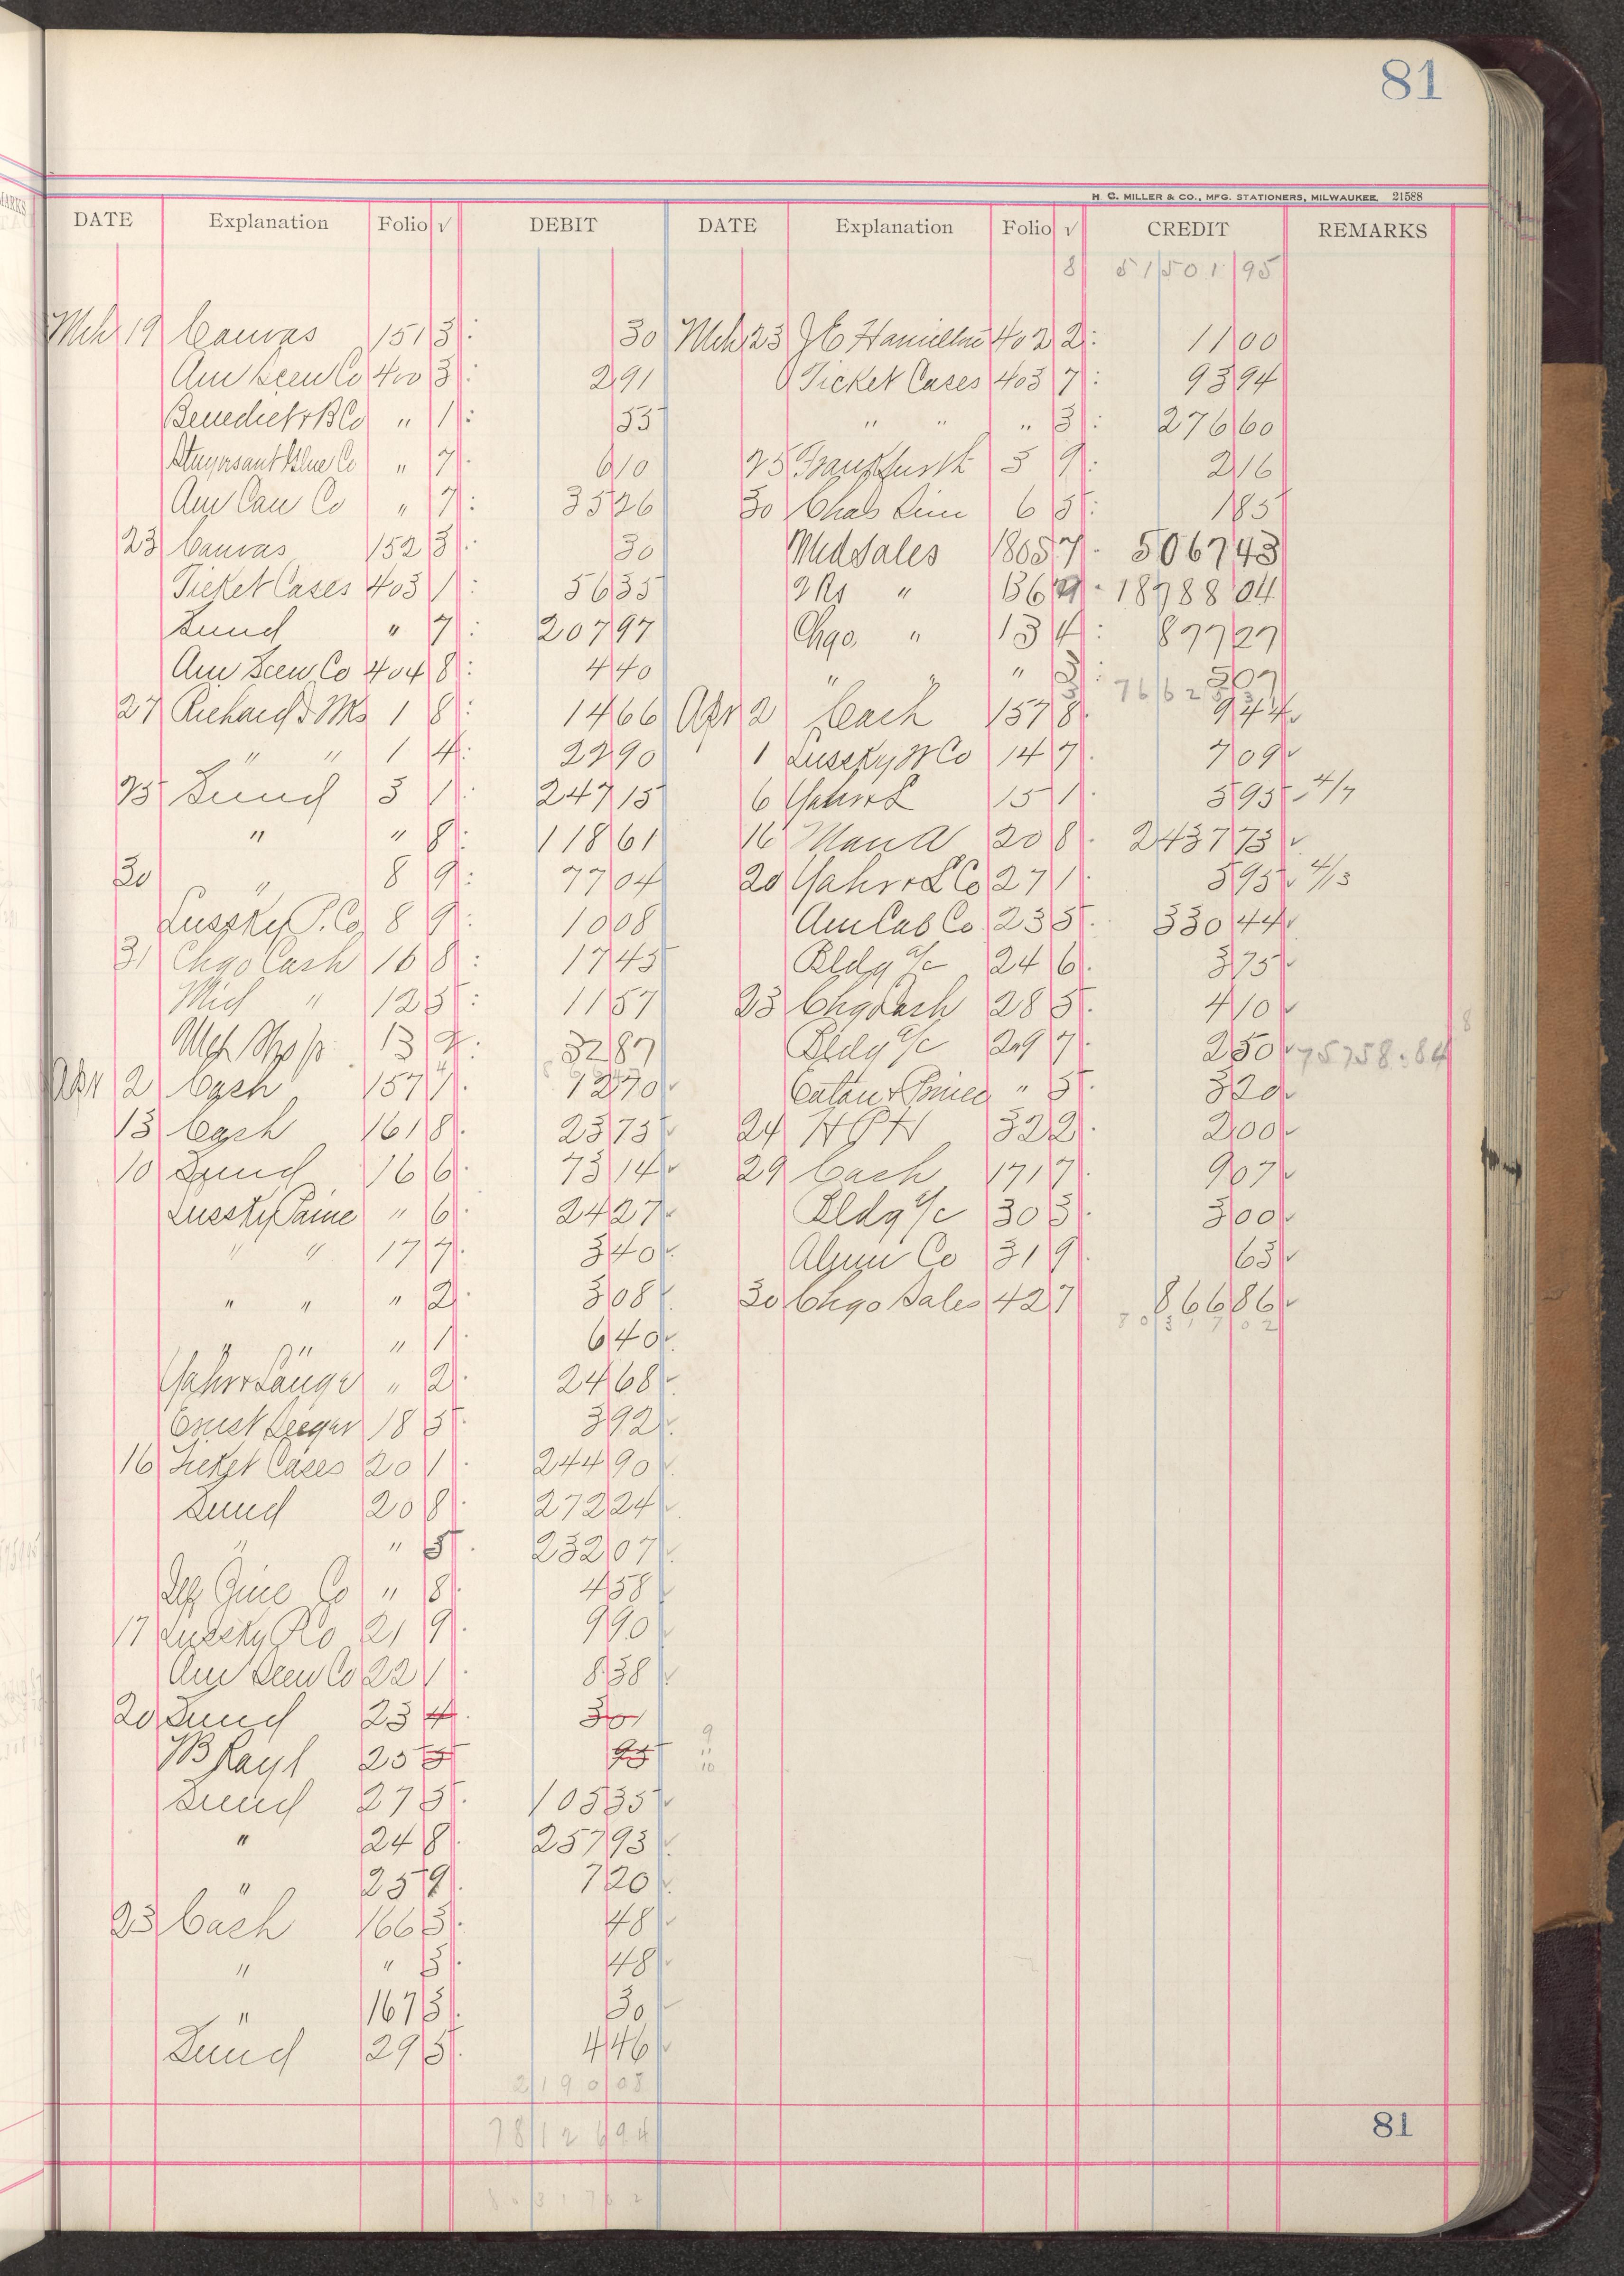 81
H. C. MILLER & CO., MFG. STATIONERS, MILWAUKEE. 21588
DATE Explanation Folio √ DEBIT DATE Explanation Folio √ CREDIT REMARKS
8 51 501 95
Mch 19 Canvas 151 3 30 Mch 23 402 2 11 00
Am Seen Co 400 3 2 91 Ticket Cases 403 7 93 94
Benedict & B Co " 1 55 " " " 3 276 60
Stuyvesant Glue Co " 7 6 10 25 Frankfurth 5 9 2 16
Am Can Co " 7 35 26 30 Chas 6 5 1 85
23 Canvas 152 3 30 Mdse Sales 180 5 7 5067 43
Ticket Cases 403 1 56 35 " 136 18788 04
Lund " 7 207 97 Chgo " 13 4 877 27
Am Seen Co 404 8 4 40 " " " 3
27 Richards Mf 1 8 14 66 Apr 2 Cash 157 8 9 44
" " 1 4 22 90 1 Lussky W Co 14 7 7 09
25 Lund 5 1 247 15 6 Yahr & L 15 1 5 95 4/7
" " 8 118 61 16 20 8 2437 73
30 " 8 9 77 04 20 Yahr & L Co 27 1 5 95 4/3
Lussky P. Co 8 9 10 08 Am Cab Co 23 5 330 44
31 Chgo Cash 16 8 17 45 Bldg a/c 24 6 3 75
Mid " 12 5 11 57 23 Chgo Cash 28 5 4 10
13 32 87 Bldg a/c 29 7 2 50 75758.84
Apr 2 Cash 157 7 12 70 " 5 3 20
13 Cash 161 8 23 75 24 H P H 32 2 2 00
10 Lund 16 6 73 14 29 Cash 171 7 9 07
Lussky Paine " 6 24 27 Bldg a/c 30 3 3 00
" " 17 7 3 40 Co 31 9 63
" " " 2 3 08 30 Chgo Sales 42 7 866 86
" " " 1 6 40
Yahr & Lange " 2 24 68
Ernst Seeger 18 5 3 92
16 Ticket Cases 20 1 244 90
Lund 20 8 272 24
" " 5 232 07
Co " 8 4 58
17 Lussky P Co 21 9 9 90
Am Seen Co 22 1 8 38
20 Lund 23 4 30
25 5 95
Lund 27 5 105 35
" 24 8 257 93
" 25 9 7 20
23 Cash 166 3 48
" " 3 48
" 167 3 30
Lund 29 5 4 46
2190 08
78126 94
81